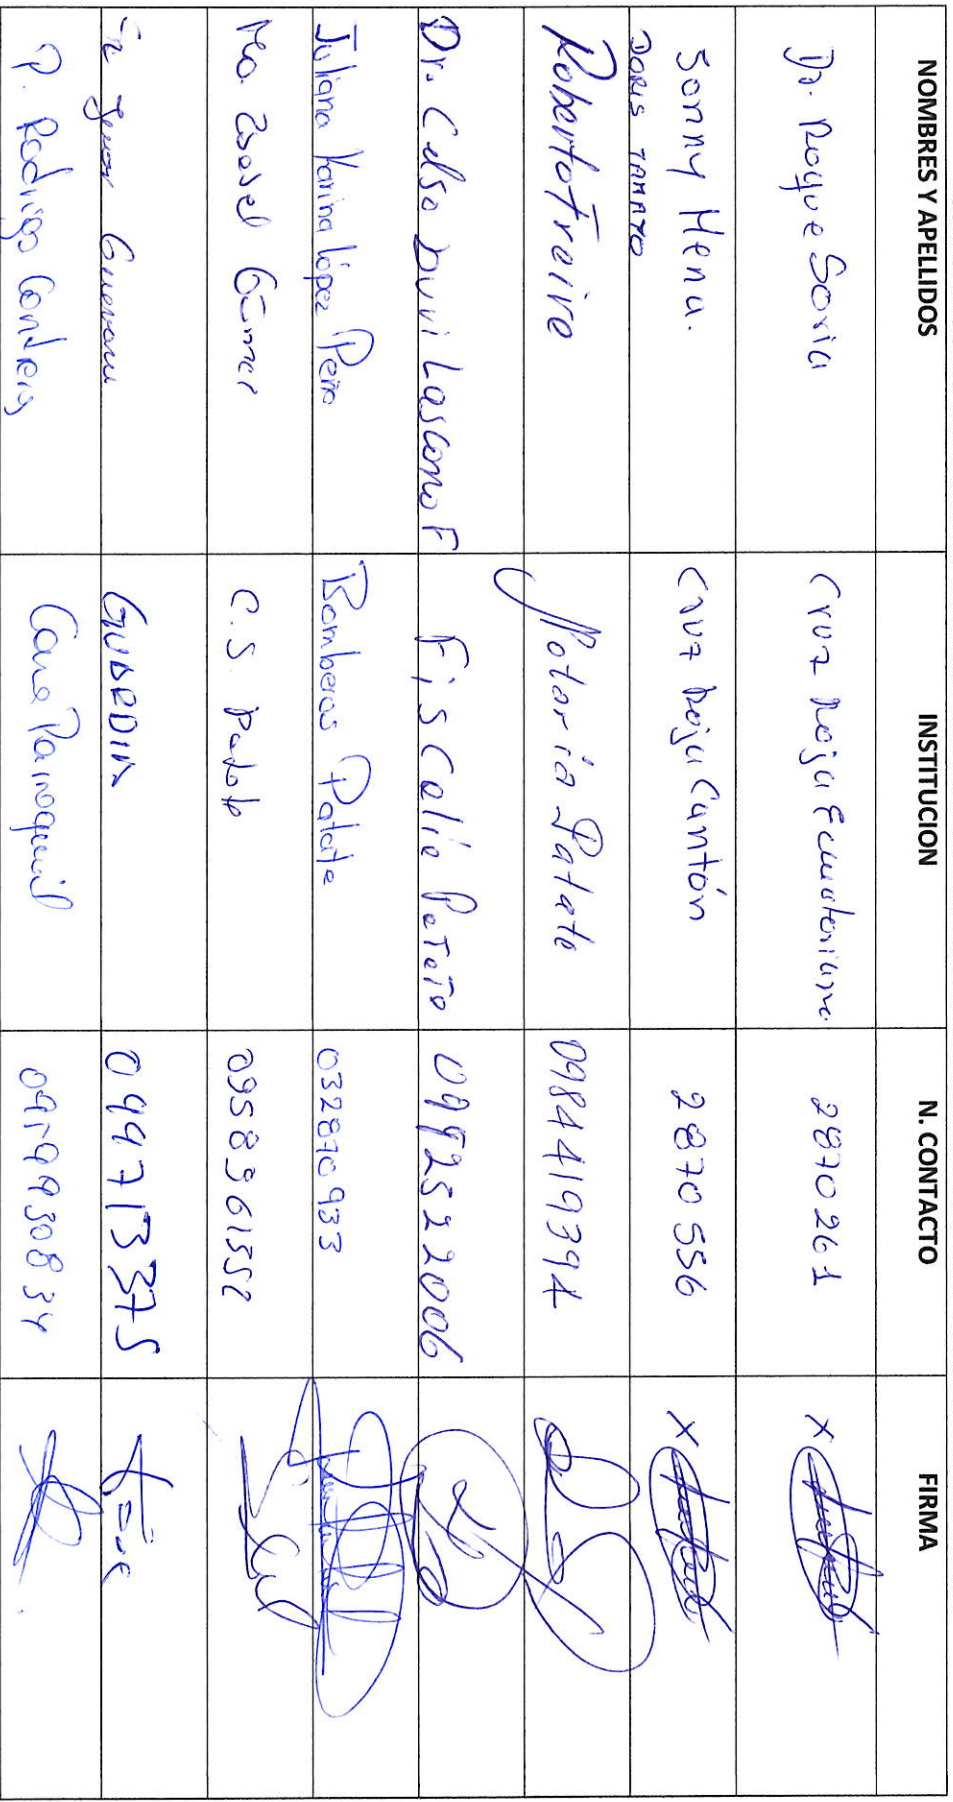 NOMBRES Y APELLIDOS INSTITUCION N. CONTACTO FIRMA
Dr. Roque Soria Cruz Roja Ecuatoriana 2870261 X
Sonny Mena. Cruz Roja Cantón 2870556 X
DORIS TAMAYO
Roberto Freire Notaría Patate 0984419394
Dr. Celso Duvi Lascano F Fiscalía Patate 0992522006
Juliana Karina López Peña Bomberos Patate 032870933
Ma. Isabel Gómez C.S. Patate 0958961552
Guevara GUARDIA 0997133375
P. Rodrigo Contreras Casa Parroquial